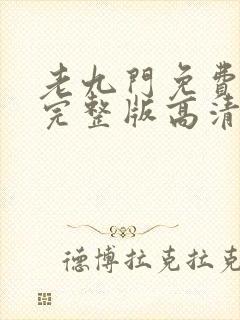 老九門免費
完整版高清
德博拉克拉克